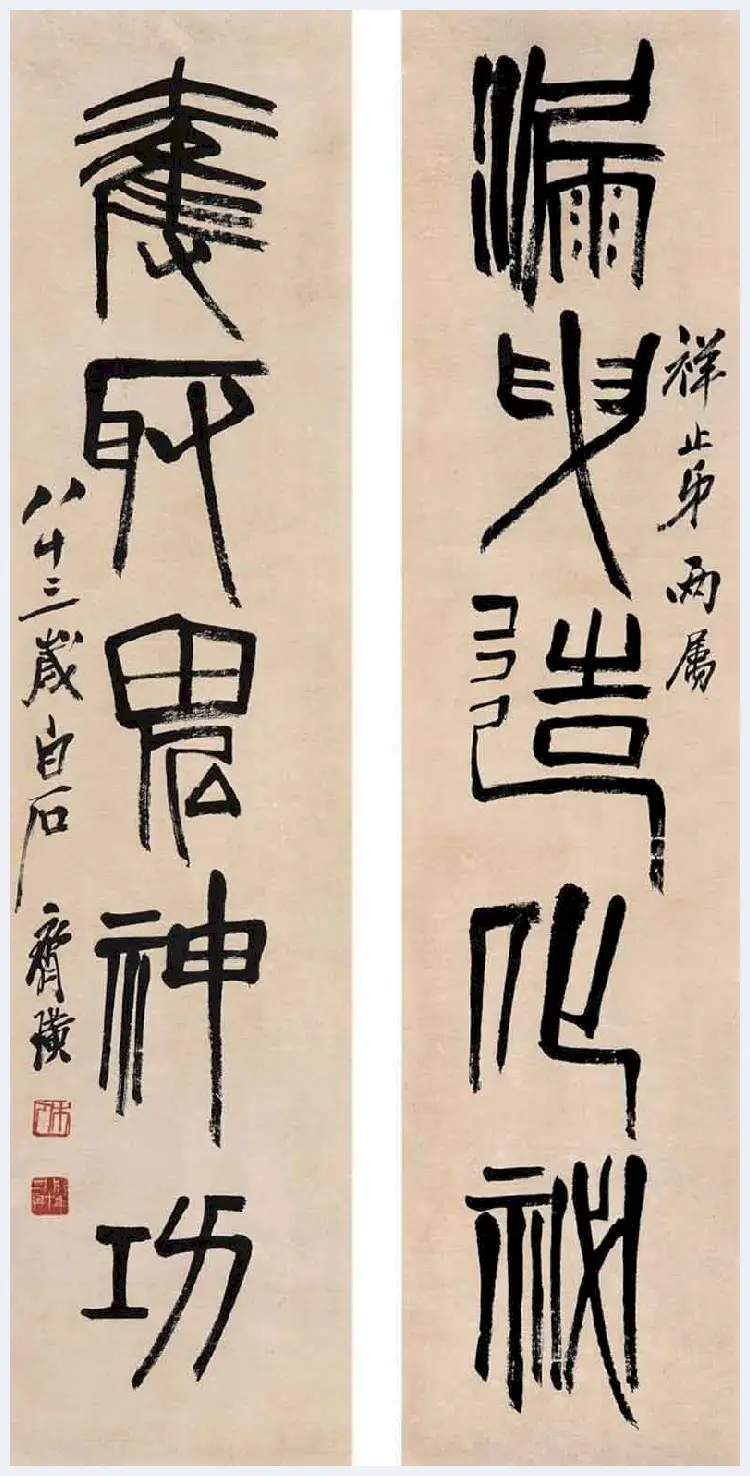 漏曳造化秘
祥止弟两属
奪取鬼神功
八十三歲白石齊璜